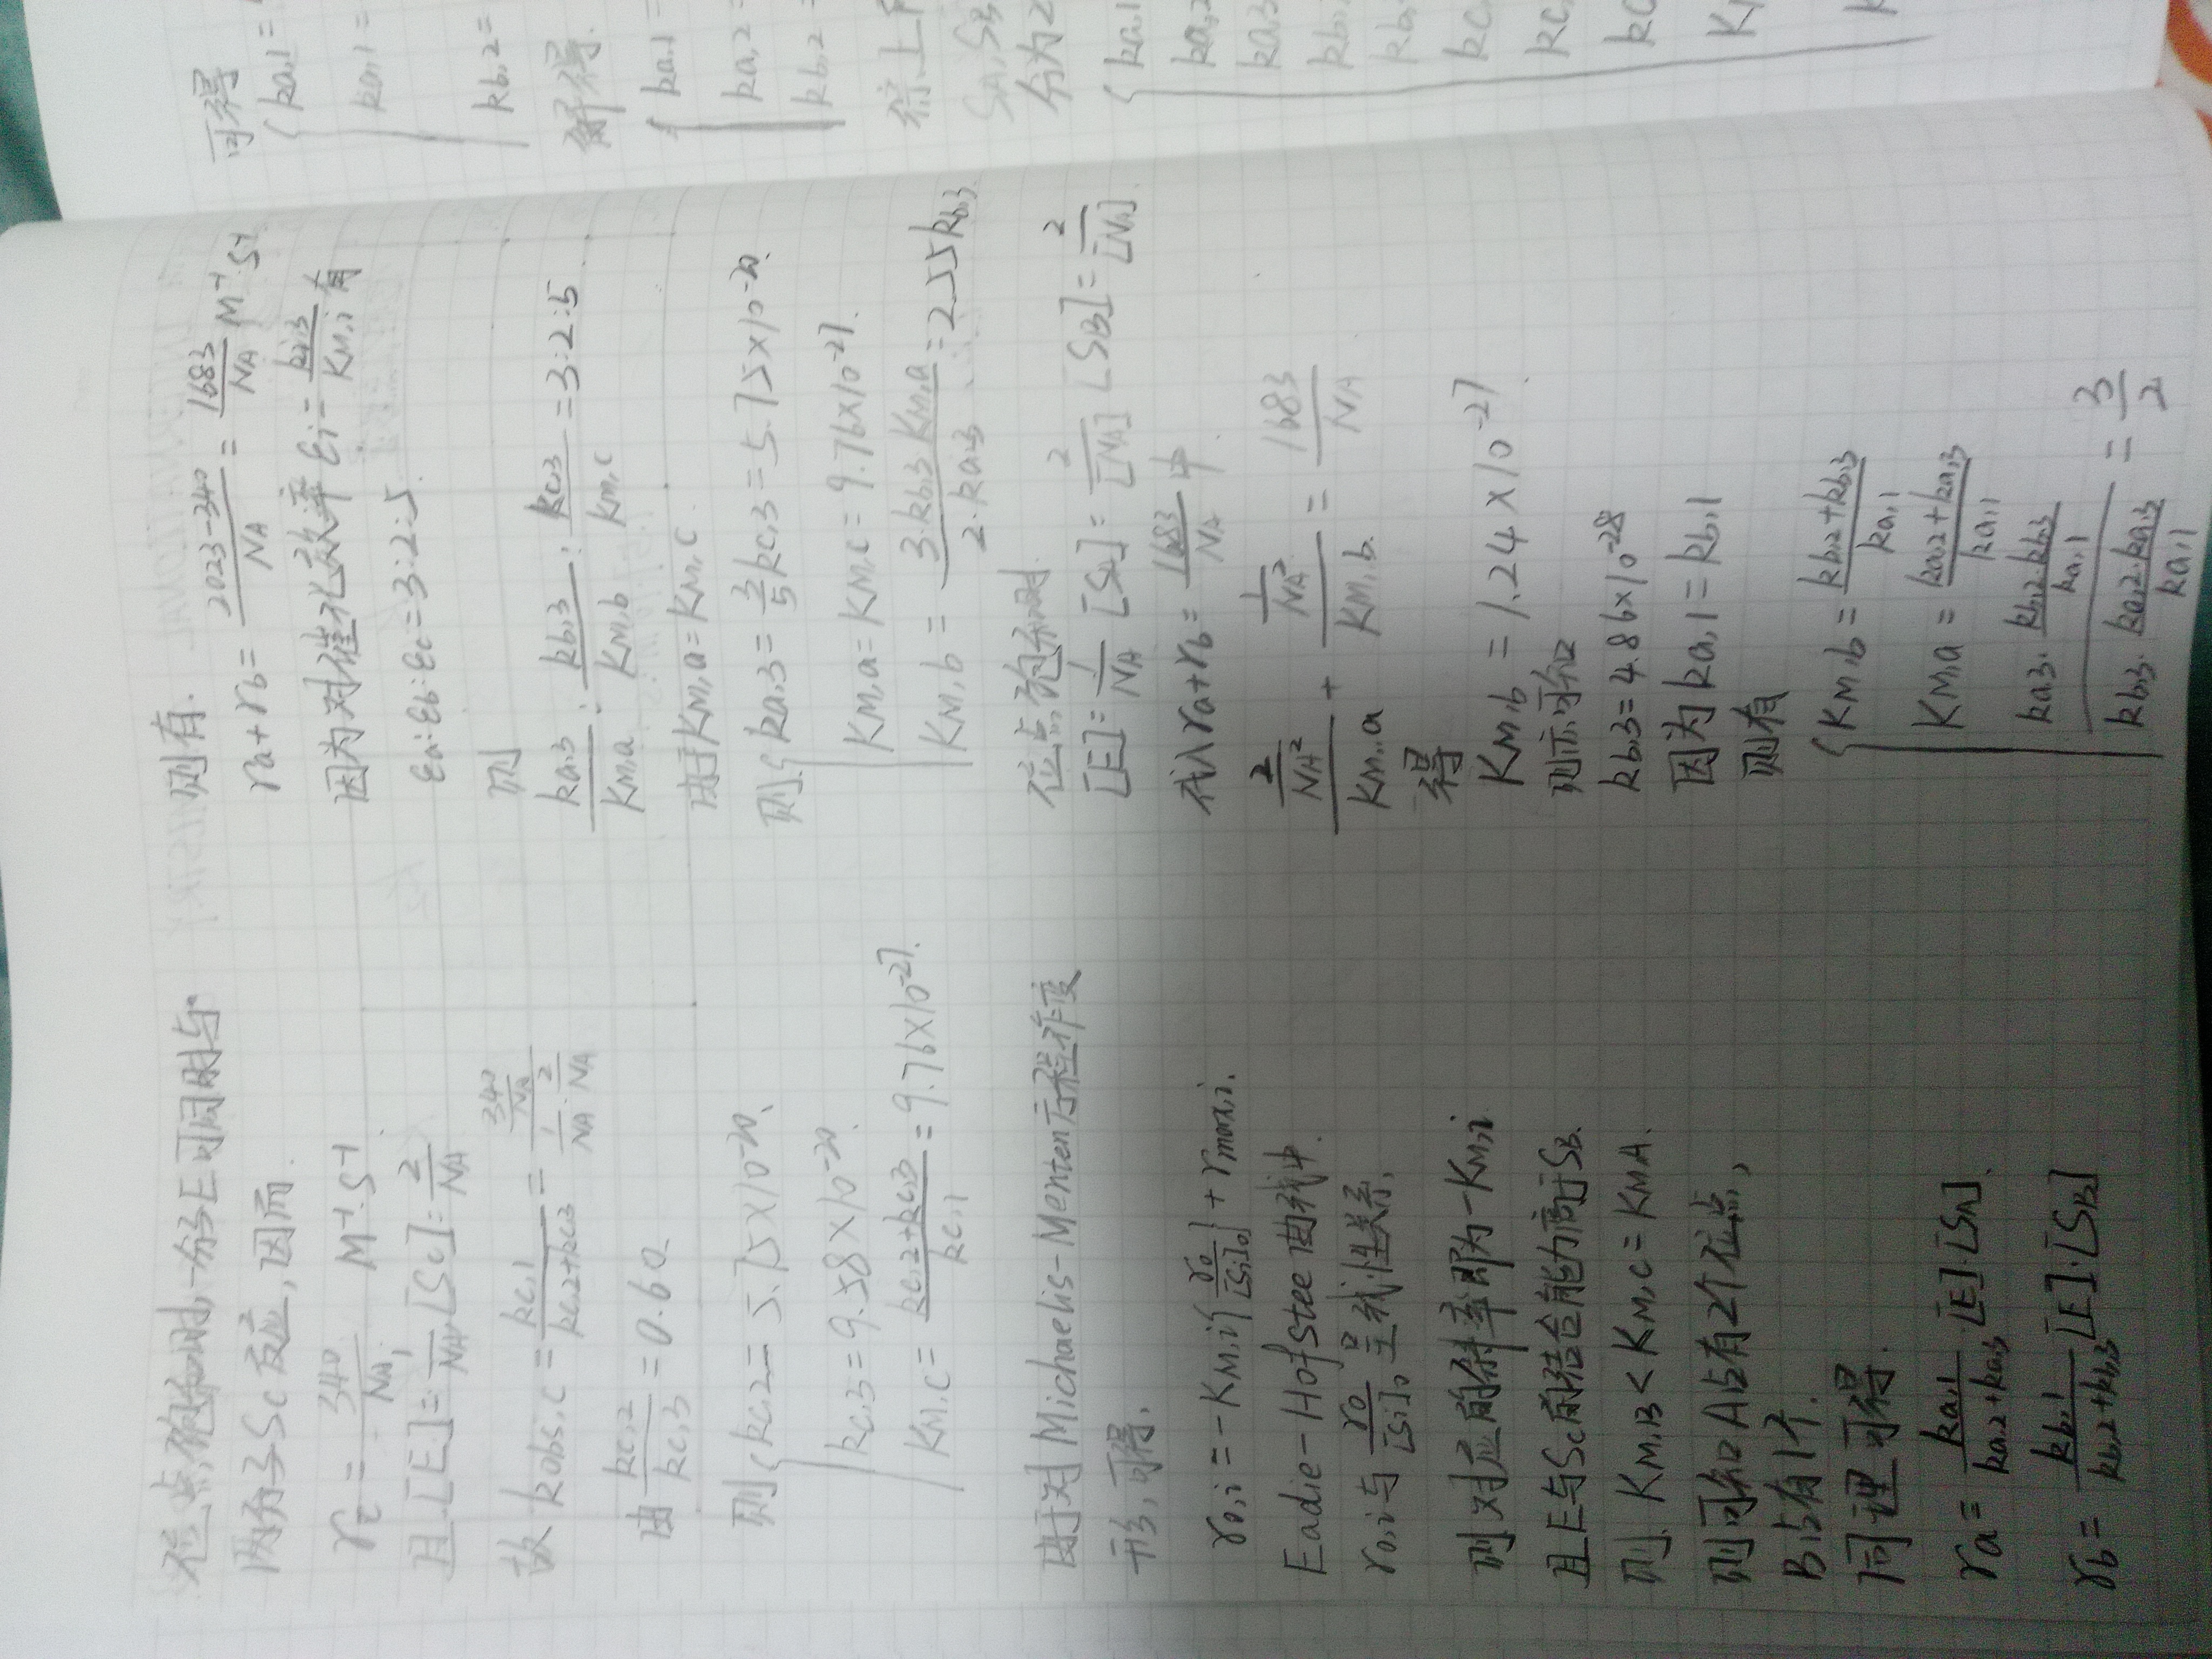 位点饱和时,一分子E可同时与
两分子Sc反应,因而.
rc = 340/NA, M⁻¹·S⁻¹
且[E]=1/NA,[Sc]=2/NA
故 kobs,c = kc,1/(kc,2+kc,3) = (340/NA)/(1/NA·2/NA)
由 kc,2/kc,3 = 0.60
则{kc,2 = 5.75×10⁻²⁰、
kc,3 = 9.58×10⁻²⁰.
KM,c = (kc,2+kc,3)/kc,1 = 9.76×10⁻²⁷.
由于对Michaelis-Menten方程作变
形,可得,
r0,i = -KM,i{r0/[Si]0} + rmax,i.
Eadie-Hofstee曲线中.
r0,i与 r0/[Si]0 呈线性关系,
则对应的斜率即为-KM,i
且E与Sc的结合能力高于SB.
则. KM,B < KM,c = KMA.
则可知A占有2个位点,
B占有1个.
同理可得.
ra = ka,1/(ka,2+ka,3) [E]·[SA].
rb = kb,1/(kb,2+kb,3) [E]·[SB]
则有.
ra+rb = (2023-340)/NA = 1683/NA M⁻¹·S⁻¹
因为对催化效率 εi = ki,3/KM,i 有
εa:εb:εc = 3:2:5.
则
ka,3/KM,a : kb,3/KM,b : kc,3/KM,c = 3:2:5
由于KM,a = KM,c.
则{ka,3 = 3/5 kc,3 = 5.75×10⁻²⁰.
KM,a = KM,c = 9.76×10⁻²⁷.
KM,b = 3·kb,3·KM,a/2·ka,3 = 2.55kb,3
位点饱和时.
[E] = 1/NA [SA] = 2/[NA] [SB] = 2/[NA]
代入ra+rb = 1683/NA 中.
(2/NA²)/KM,a + (1/NA²)/KM,b = 1683/NA
得
KM,b = 1.24×10⁻²⁷.
则亦可知
kb,3 = 4.86×10⁻²⁸
因为ka,1 = kb,1
则有
{KM,b = (kb,2+kb,3)/ka,1
KM,a = (ka,2+ka,3)/ka,1
(ka,3·(kb,2·kb,3)/ka,1)/(kb,3·(ka,2·ka,3)/ka,1) = 3/2
可得
{ka,1 =
ka,1 =
kb,2 =
解得.
{ka,1 =
ka,2 =
kb,2 =
综上
SA, SB
分为2
{ka,1
ka,2
ka,3
kb,
kb,
kc,
kc,
kc